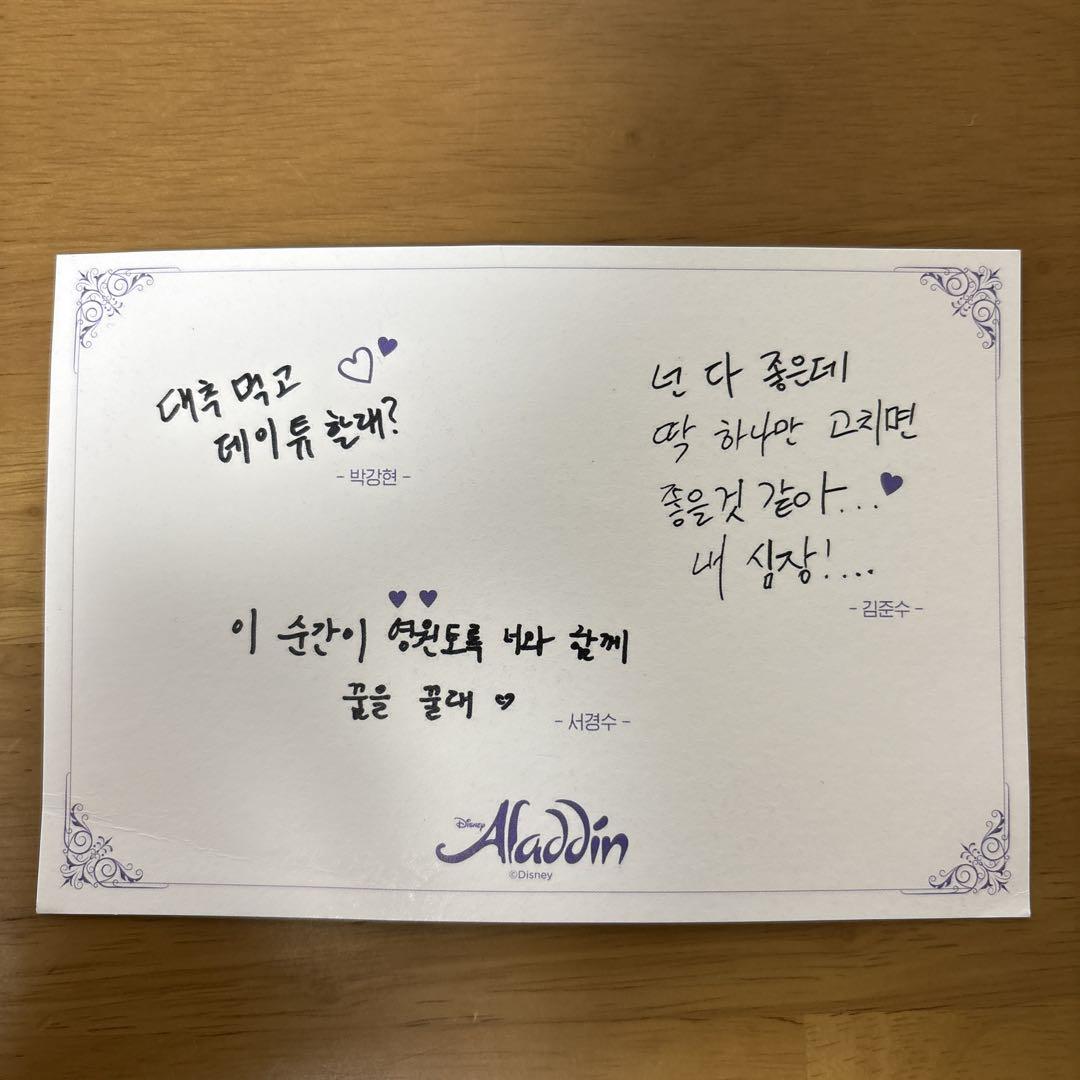 대추 먹고
데이튜 할래?
- 박강현 -
넌 다 좋은데
딱 하나만 고치면
좋을것 같아...
내 심장!...
- 김준수 -
이 순간이 영원토록 너와 함께
꿈을 꿀래
- 서경수 -
Disney Aladdin
©Disney